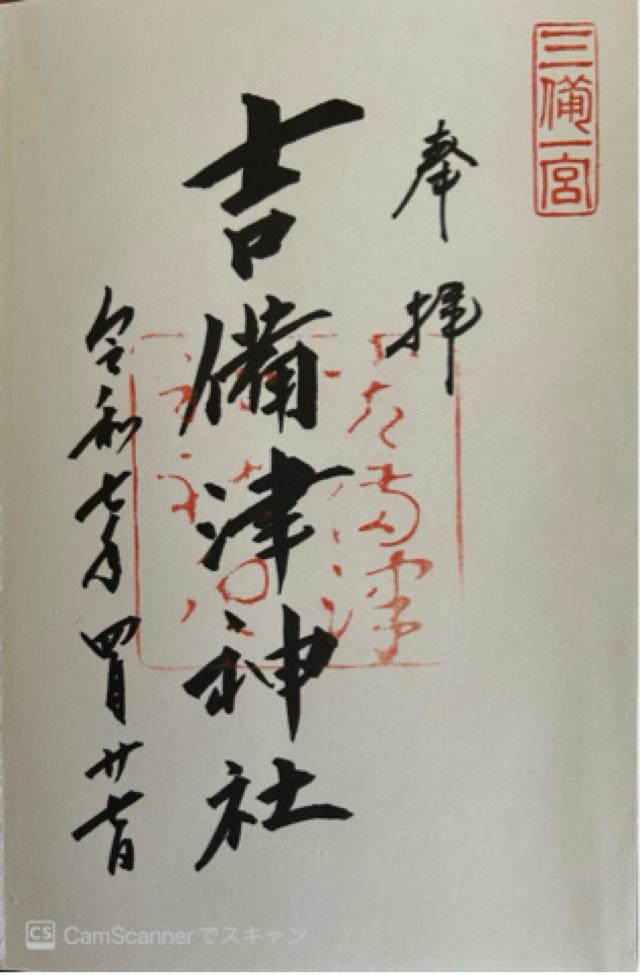 三備一宮
奉拝
吉備津神社
令和七年四月廿七日
CS CamScannerでスキャン